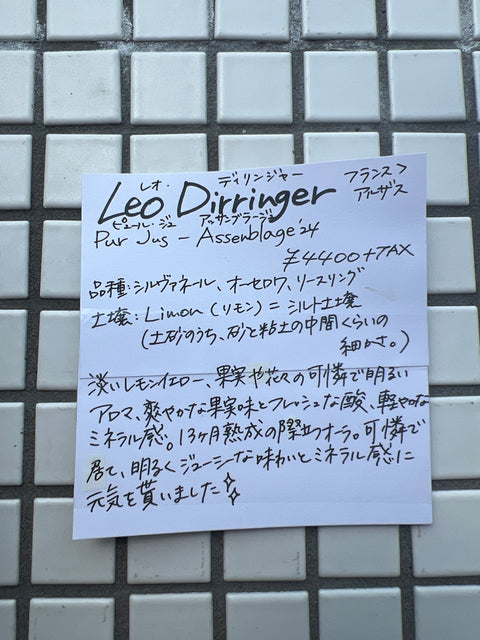 レオ・ディリンジャー
Leo Dirringer
フランス>
アルザス
ピュール・ジュ アッサンブラージュ
Pur Jus - Assemblage '24
¥4400+TAX
品種:シルヴァネール、オーセロワ、リースリング
土壌:Limon(リモン)=シルト土壌
(土砂のうち、砂と粘土の中間くらいの
細かさ。)
淡いレモンイエロー、果実や花々の可憐で明るい
アロマ、爽やかな果実味とフレッシュな酸、軽やかな
ミネラル感。13ヶ月熟成の際立つオーラ。可憐で
居て、明るくジューシーな味わいとミネラル感に
元気を貰いました